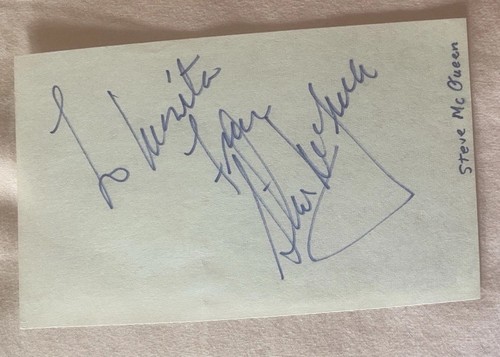 To Juanita
From
Steve McQueen
Steve Mc Queen